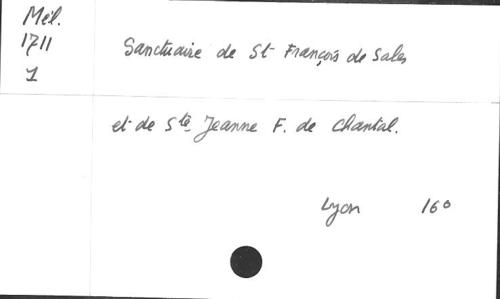 Mél.
1711
1
Sanctuaire de St François de Sales
et de Ste Jeanne F. de Chantal.
Lyon 16°